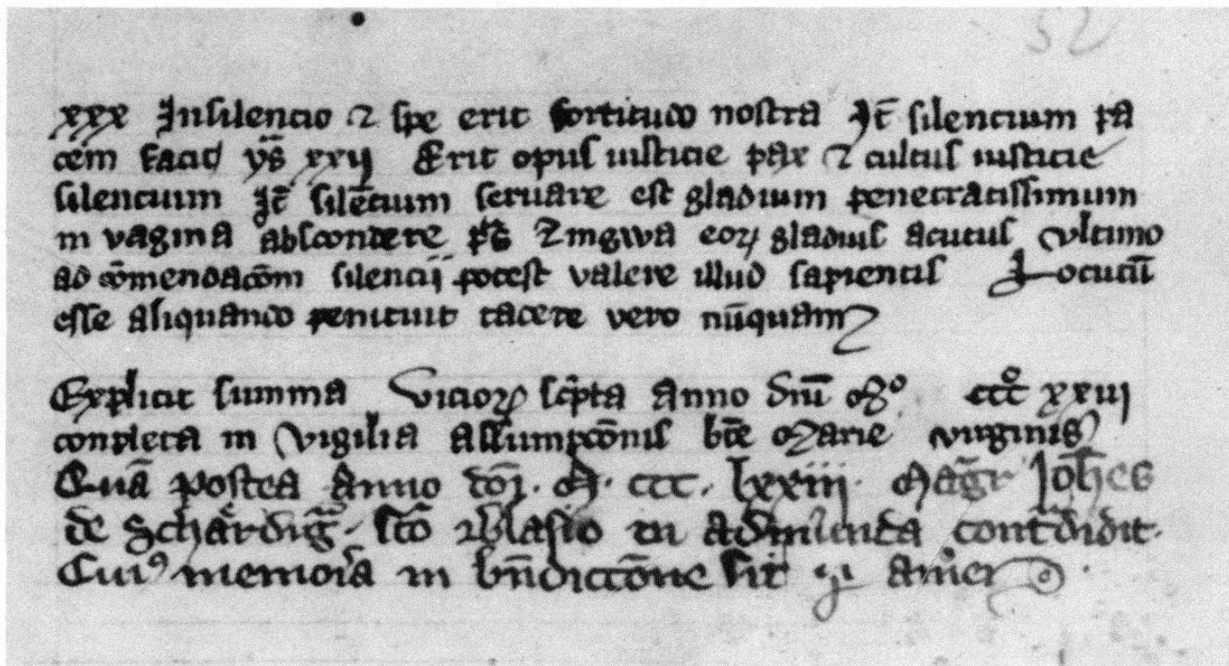 52
xxx Insilencio ⁊ spe erit fortitudo nostra Jt̄ silencium pa
cem facit ys̄ xxij Erit opus iusticie pax ⁊ cultus iusticie
silencium Jt̄ silēcium seruare est gladium penetratissimum
in vagina abscondere ps̄ Lingwa eoꝝ gladius acutus Vltimo
ad cōmendacōm silencij potest valere illud sapientis Locutū
esse aliquando penituit tacere vero nūquam
Explicit summa Vicioꝝ sc̄pta anno dn̄i Mº ccc̊ xxiij
conpleta in Vigilia assumpcōnis bt̄e Marie virginis
Quā postea Anno dōj · M · ccc · lxxiii · Magr̄ Joh̄es
de Schärdiḡ · sc̄o Blasio in cont̄didit ·
Cuiꝰ memoīa in bn̄diccōne sit Amen